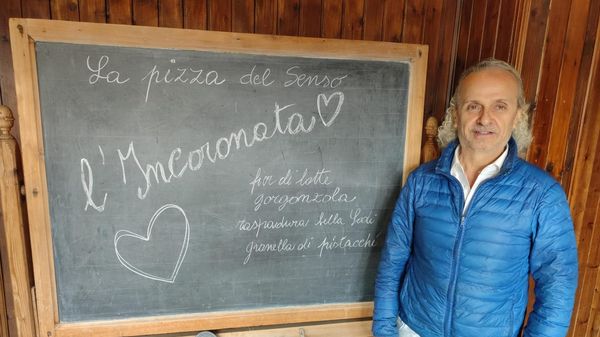 La pizza del Senso
l'Incoronata
fior di latte
gorgonzola
raspadura bella Lodi
granella di pistacchi